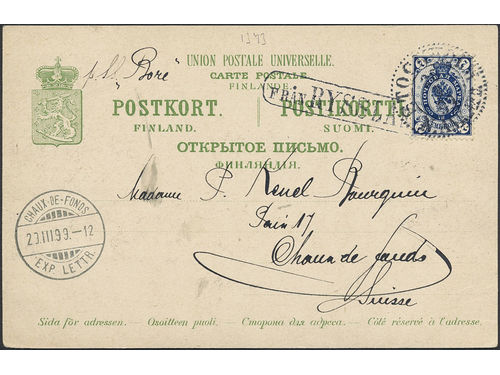 1393
p. ss. "Bore"
UNION POSTALE UNIVERSELLE.
CARTE POSTALE
FINLANDE.
FRÅN RYSSLAND
POSTKORT. POSTIKORTTI
FINLAND. SUOMI.
ОТКРЫТОЕ ПИСЬМО.
ФИНЛЯНДІЯ.
Madame P. Kenel Bourquin
17
Chaux de fonds
Suisse
CHAUX-DE-FONDS
20.III99.-12
EXP. LETTR.
Sida för adressen. – Osoitteen puoli. – Сторона для адреса. – Côté réservé à l'adresse.